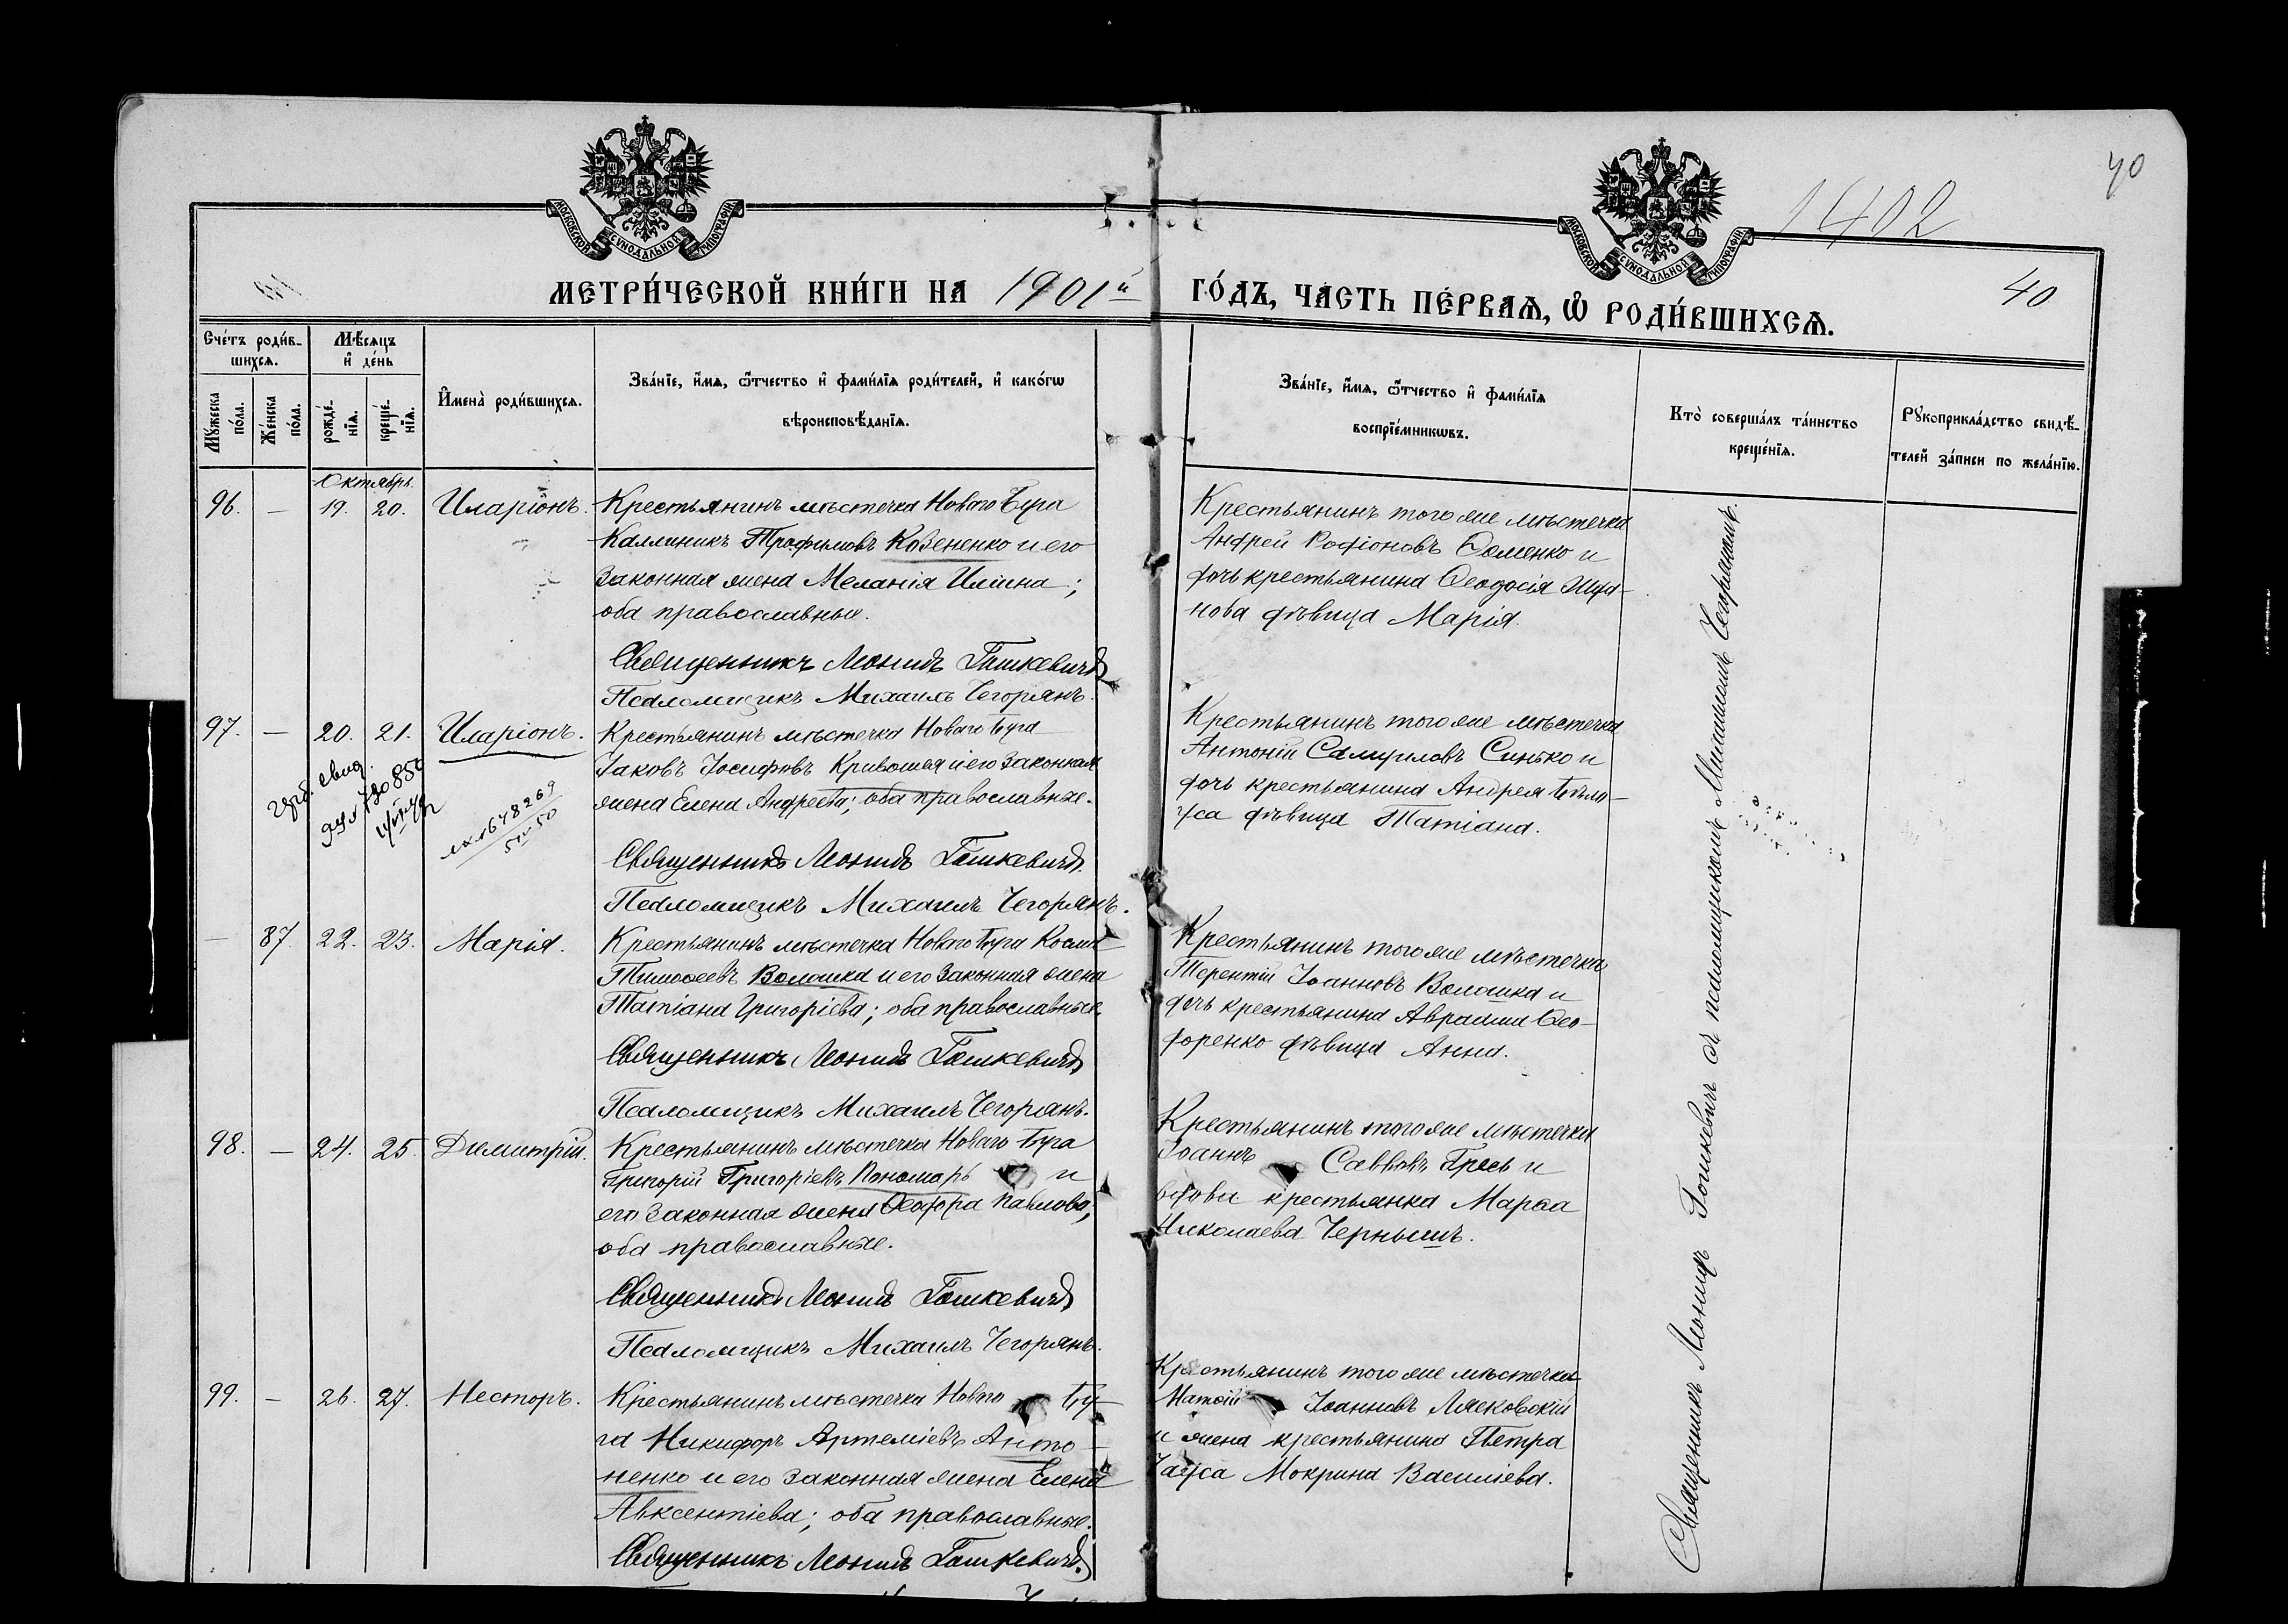 МОСКОВСКОЙ СѴНОДАЛЬНОЙ ТИПОГРАФІИ
МОСКОВСКОЙ СѴНОДАЛЬНОЙ ТИПОГРАФІИ
1402
40
МЕТРИ́ЧЕСКОЙ КНИ́ГИ НА 1901й
ГО́ДЪ, ЧА́СТЬ ПЕ́РВАѦ, Ѡ҆ РОДИ́ВШИХСѦ.
40
Сче́тъ роди́в-
шихсѧ.
Мꙋ́жеска по́ла.
Же́нска по́ла.
Мѣ́сѧцъ
и҆ де́нь
рожде́-
нїѧ.
креще́-
нїѧ.
И҆мена̀ роди́вшихсѧ.
Зва́нїе, и҆́мѧ, ѻ҆́тчество и҆ фами́лїѧ роди́телей, и҆ како́гѡ
вѣроисповѣ́данїѧ.
Зва́нїе, и҆́мѧ, ѻ҆́тчество и҆ фами́лїѧ
воспрїе́мникѡвъ.
Кто̀ соверша́лъ та́инство
креще́нїѧ.
Рꙋкоприкла́дство свидѣ́-
телей за́писи по жела́нїю.
Октябрь.
96. — 19. 20. Иларіонъ. Крестьянинъ мѣстечка Новаго Буга
Каллиникъ Трофимовъ Козененко и его
законная жена Меланія Иліина;
оба православные.
Священникъ Леонидъ Гошкевичъ
Псаломщикъ Михаилъ Чегорянъ.
Крестьянинъ того же мѣстечка
Андрей Родіоновъ Доменко и
дочь крестьянина Ѳеодосія
дѣвица Марія.
97. — 20. 21. Иларіонъ. Крестьянинъ мѣстечка Новаго Буга
Іаковъ Іосифовъ Кривошея и его законная
жена Елена Андреева; оба православные.
Священникъ Леонидъ Гошкевичъ.
Псаломщикъ Михаилъ Чегорянъ.
Крестьянинъ того же мѣстечка
Антоній Самуиловъ Синько и
дочь крестьянина Андрея Бѣло-
уса дѣвица Татіана.
— 87. 22. 23. Марія. Крестьянинъ мѣстечка Новаго Буга Косма
Тимоѳеевъ Волошка и его законная жена
Татіана Григоріева; оба православные.
Священникъ Леонидъ Гошкевичъ
Псаломщикъ Михаилъ Чегорянъ.
Крестьянинъ того же мѣстечка
Терентій Іоанновъ Волошка и
дочь крестьянина Авраама Ѳео-
доренко дѣвица Анна.
98. — 24. 25. Димитрій. Крестьянинъ мѣстечка Новаго Буга
Григорій Григоріевъ Пономарь и
его законная жена Ѳеодора Павлова;
оба православные.
Священникъ Леонидъ Гошкевичъ
Псаломщикъ Михаилъ Чегорянъ.
Крестьянинъ того же мѣстечка
Іоаннъ Саввовъ Гресь и
вдова крестьянка Марѳа
Николаева Чернышъ.
99. — 26. 27. Несторъ. Крестьянинъ мѣстечка Новаго Бу-
га Никифоръ Артеміевъ Анто-
ненко и его законная жена Елена
Авксентіева; оба православные.
Священникъ Леонидъ Гошкевичъ.
Крестьянинъ того же мѣстечка
Матѳій Іоанновъ Лясковскій
и жена крестьянина Петра
Чауса Мокрина Василіева.
Священникъ Леонидъ Гошкевичъ съ псаломщикомъ Михаиломъ Чегоряномъ.